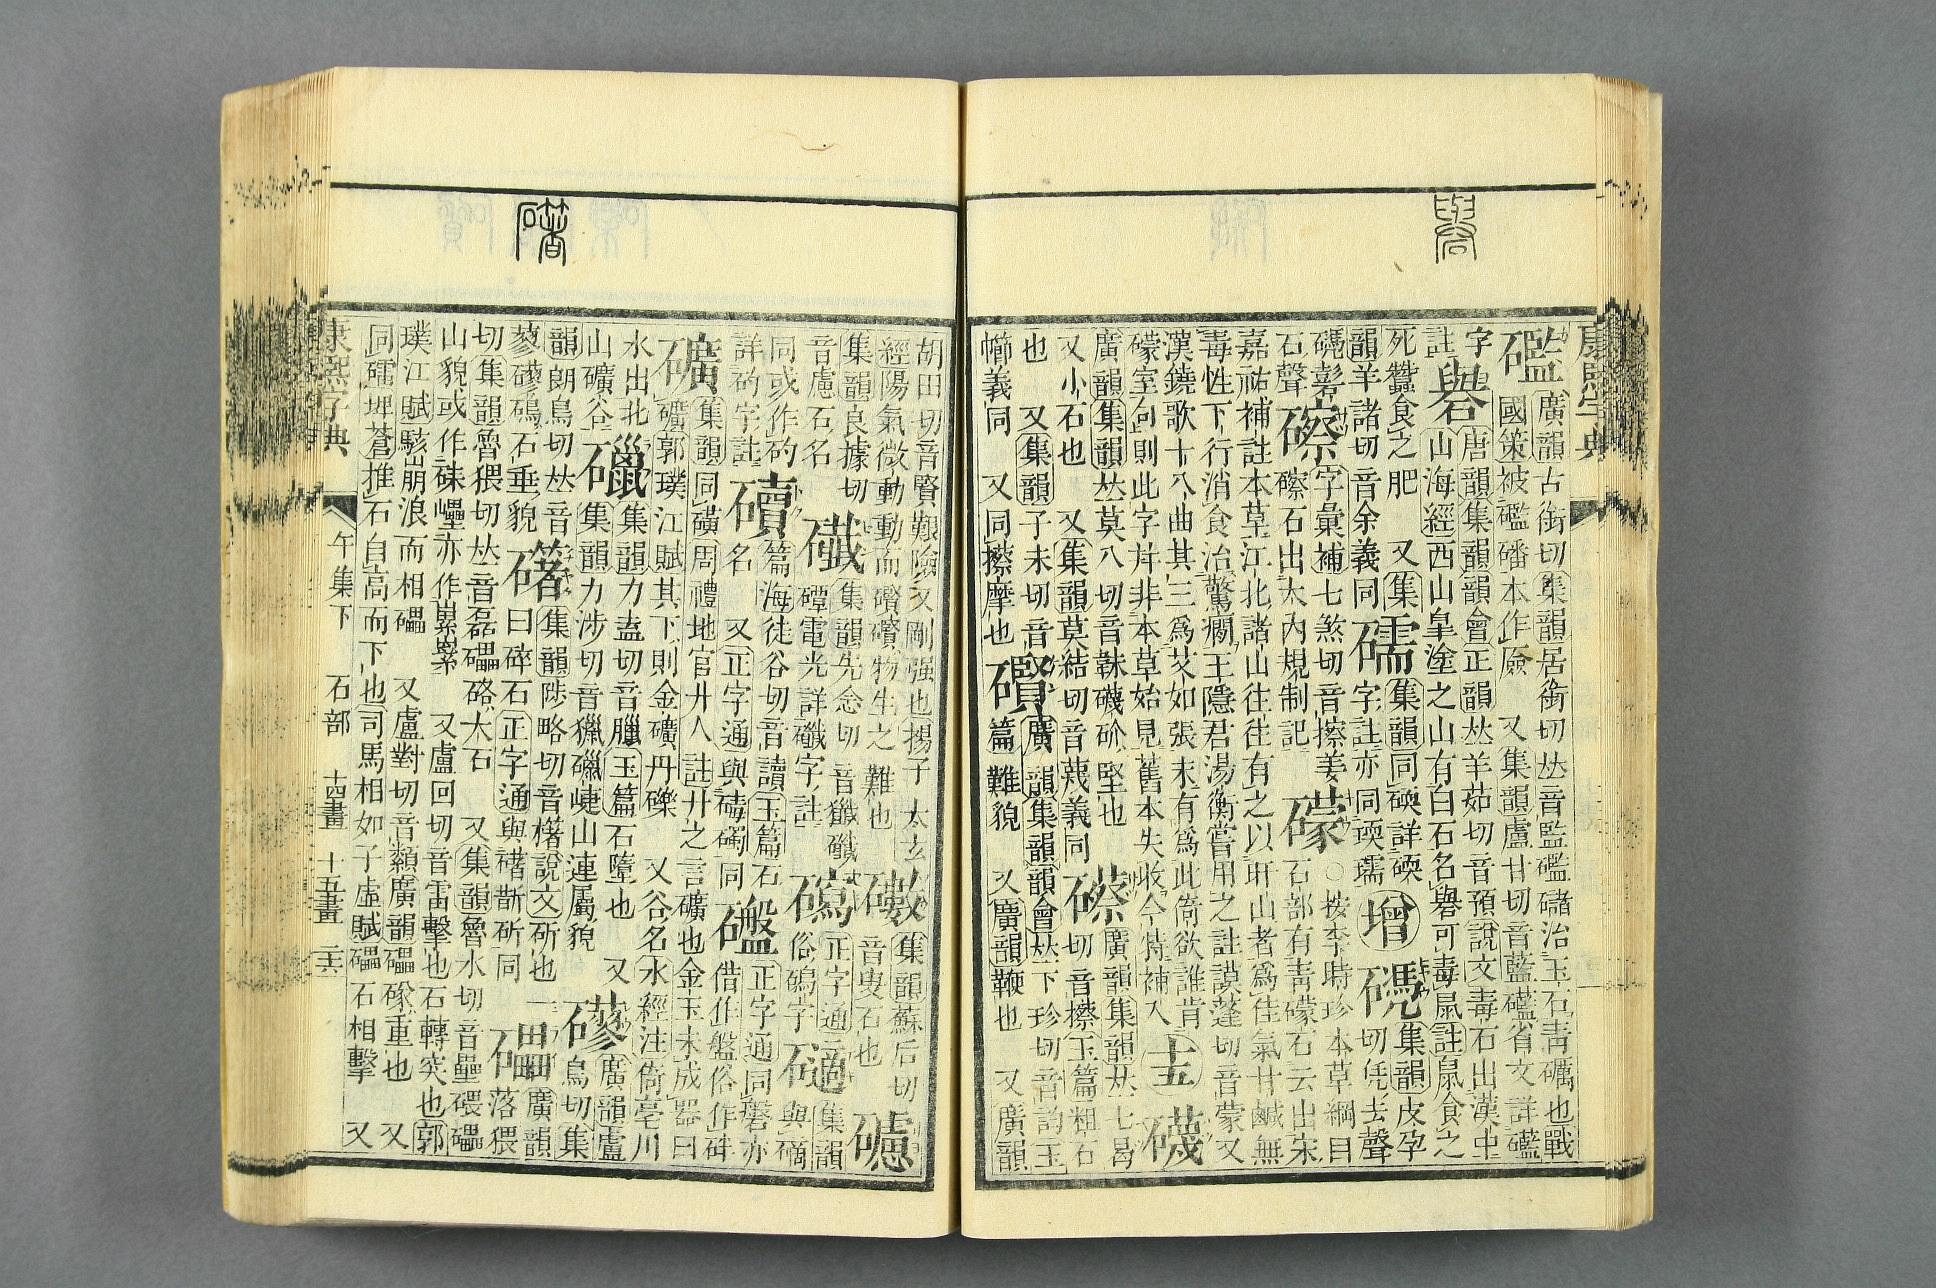 礜
康熙字典
礛
廣韻古銜切集韻居銜切𠀤音監礛䃴治玉石靑礪也戰
國策被礛磻本作𠪚 又集韻盧甘切音藍礷省文詳礷
字
註
礜
唐韻集韻韻會正韻𠀤羊茹切音預說文毒石出漢中
山海經西山皐塗之山有白石名礜可毒鼠註鼠食之
死蠶食之肥 又集
韻羊諸切音余義同
礝
集韻同碝詳碝
字註亦同瑌瓀
增
集韻皮孕
切凭去聲
石聲
礤
字彙補七煞切音擦姜
礤石出大內規制記
礞
○按李時珍本草綱目
石部有靑礞石云出宋
嘉祐補註本草江北諸山往往有之以山者爲佳氣甘鹹無
毒性下行消食治驚癎王隱君湯衡嘗用之註謨蓬切音蒙又
漢鐃歌十八曲其三爲艾如張末有爲此倚欲誰肯
礞室句則此字幷非本草始見舊本失收今特補入
十五
礣
廣韻集韻𠀤莫八切音礣砎堅也
又小石也 又集韻莫結切音蔑義同
礤
廣韻集韻𠀤七曷
切音擦玉篇粗石
也 又集韻子末切音
幯義同 又同擦摩也
礥
廣韻集韻韻會𠀤下珍切音玉
篇難貌 又廣韻鞕也 又廣韻
櫡
胡田切音賢艱險又剛强也揚子太玄
經陽氣微動動而礥礥物生之難也
集韻蘇后切
音叟石也
集韻良據切
音慮石名
集韻先念切音
磹電光詳字註
正字通
俗磶字
集韻
與碻
同或作
詳字註
篇海徒谷切音讀玉篇石
名 又正字通與碡同
正字通同磐亦
借作盤俗作
礦
集韻同磺周禮地官丱人註丱之言礦也金玉未成器曰
礦郭璞江賦其下則金礦丹礫 又谷名水經注衜亳川
水出北
山礦谷
集韻力盍切音臘玉篇石墮也 又
集韻力涉切音獵崨山連屬貌
廣韻盧
鳥切集
韻朗鳥切𠀤音
蓼石垂貌
集韻陟略切音櫡說文斫也一
曰碎石正字通與斮斫同
礧
廣韻
落猥
切集韻魯猥切𠀤音磊礧硌大石 又集韻魯水切音壘碨礧
山貌或作硃㠥亦作 又盧回切音雷擊也石轉突也郭
璞江賦駭崩浪而相礧 又盧對切音纇廣韻礧重也 又
同礌埤蒼推石自高而下也司馬相如子虛賦礧石相擊 又
康熙字典
午集下
石部
十四畫
十五畫
二六